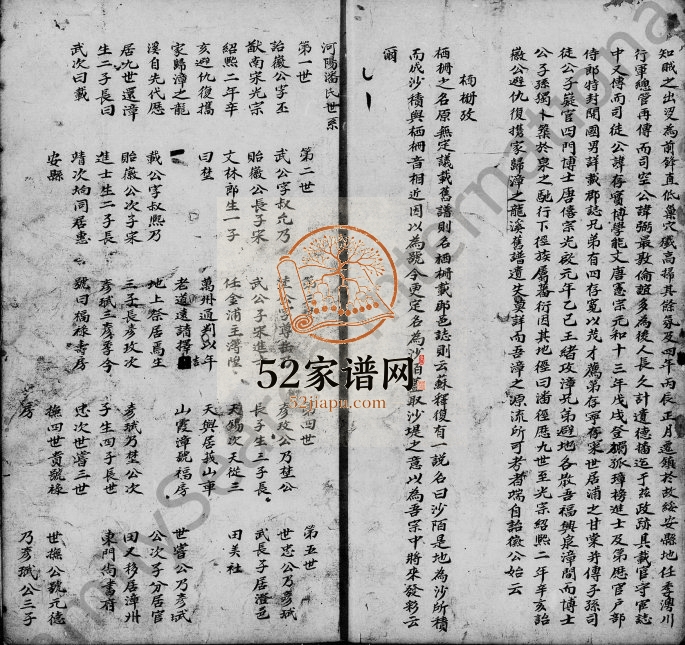 知賊之出沒為前鋒直低巢穴殲高掃其餘氛及四年丙辰正月還鎮於故綏安縣地任李漙川
行軍總管再傳而司空公諱弼最敦倫誼多為後人長久計道德播迄于茲政跡具載官守官誌
中又傳而司徒公諱存實博學能文唐憲宗元和十三年戊戌登
侍郎特封開國男詳載郡誌兄弟有四存寬以茂才薦弟存寧存
徒公子嶷官四門博士唐僖宗光啟元年乙巳王緒攻漳兄弟避地各散吾福興泉漳間而博士
公子孫獨卜築於泉之馳行下徑族屬蕃衍因其地徑曰潘徑歷九世至光宗紹熙二年辛亥詒
徽公避仇復攜家歸漳之龍溪舊譜遺失莫詳而吾漳之源流所可考者端自詒徽公始云
栖柵攷
栖柵之名原無定議載舊譜則名栖柵載郡邑誌則云蘇釋復有一說名曰沙陌是地為沙所積
而成沙積與栖柵音相近因以為號今更定名為沙陌蓋取沙堤之意以為吾宗中將來發彩云
爾
河陽潘氏世系
第一世
詒徽公字丕
猷南宋光宗
紹熙二年辛
亥避仇復攜
家歸漳之龍
溪自先代歷
居九世還漳
生二子長曰
武次曰載
第二世
武公字叔允乃
貽徽公長子宋
文林郎生一子
曰埜
載公字叔熙乃
貽徽公次子宋
進士生二子長
靖次㘭同居惠
安縣
第三世
武公子宋進士
任金浦主簿陞
萬州通判以年
老道遠請擇
地上祭居焉生
三子長彥玫次
彥珷三彥季今
號曰福祿壽房
第四世
彥玫公乃埜公
長子生三子長
天錫次天從三
天與居莪山車
山霞漳號福房
彥珷乃埜公次
子生四子長世
忠次世嘗三世
撫四世貴號祿
房
第五世
世忠公乃彥珷
武長子居澄邑
田美社
世嘗公乃彥珷
公次子分居官
田又移居漳州
東門尚書府
世撫公號元德
乃彥珷公三子
52家谱网
52jiapu.com